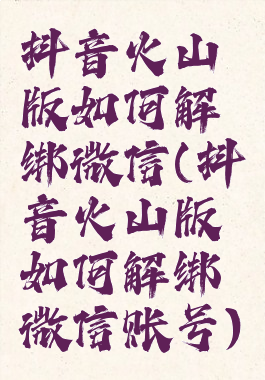 抖音火山
版如何解
绑微信(抖
音火山版
如何解绑
微信账号)